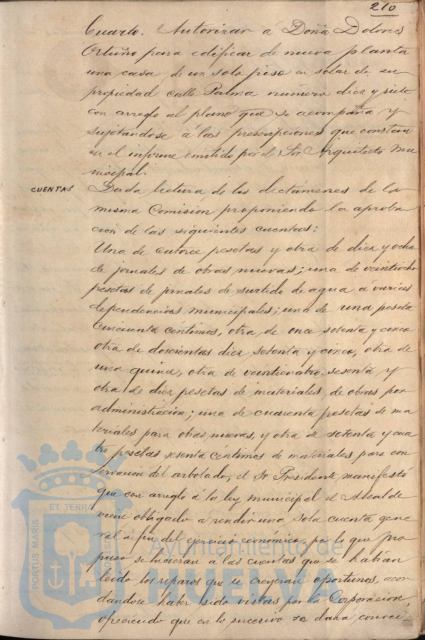 210
Cuarto. Autorizar á Doña Dolores
Ortuño para edificar de nueva planta
una casa de un solo piso en solar de su
propiedad calle Palma número diez y siete
con arreglo al plano que se acompaña y
sujetándose a las prescripciones que constan
en el informe emitido por el Sr. Arquitecto Mu-
nicipal.
CUENTAS
Dada lectura de los dictámenes de la
misma Comision proponiendo la aproba-
cion de las siguientes cuentas:
Una de catorce pesetas y otra de diez y ocho
de jornales de obras nuevas; una de veintiocho
pesetas de jornales de surtido de agua a varias
dependencias municipales; una de una peseta
cincuenta centimos, otra de once setenta y cinco
otra de doscientas diez setenta y cinco, otra de
una quince, otra de veinticuatro sesenta y
otra de diez pesetas de materiales, de obras por
administracion; una de cuarenta pesetas de ma-
teriales para obras nuevas, y otra de setenta y cua-
tro pesetas sesenta centimos de materiales para con-
servacion del arbolado, el Sr. Presidente manifestó
que con arreglo á la ley municipal el Alcalde
viene obligado a rendir una sola cuenta gene-
ral á fin del ejercicio económico, por lo que pro-
puso se hicieran a las cuentas que se habian
leido los reparos que se creyeran oportunos, acor-
dandose haber sido vistas por la Corporacion,
ofreciendo que en lo sucesivo se dará conoci
PORTUS MARIS ET TERRAE
Ayuntamiento de
HUELVA